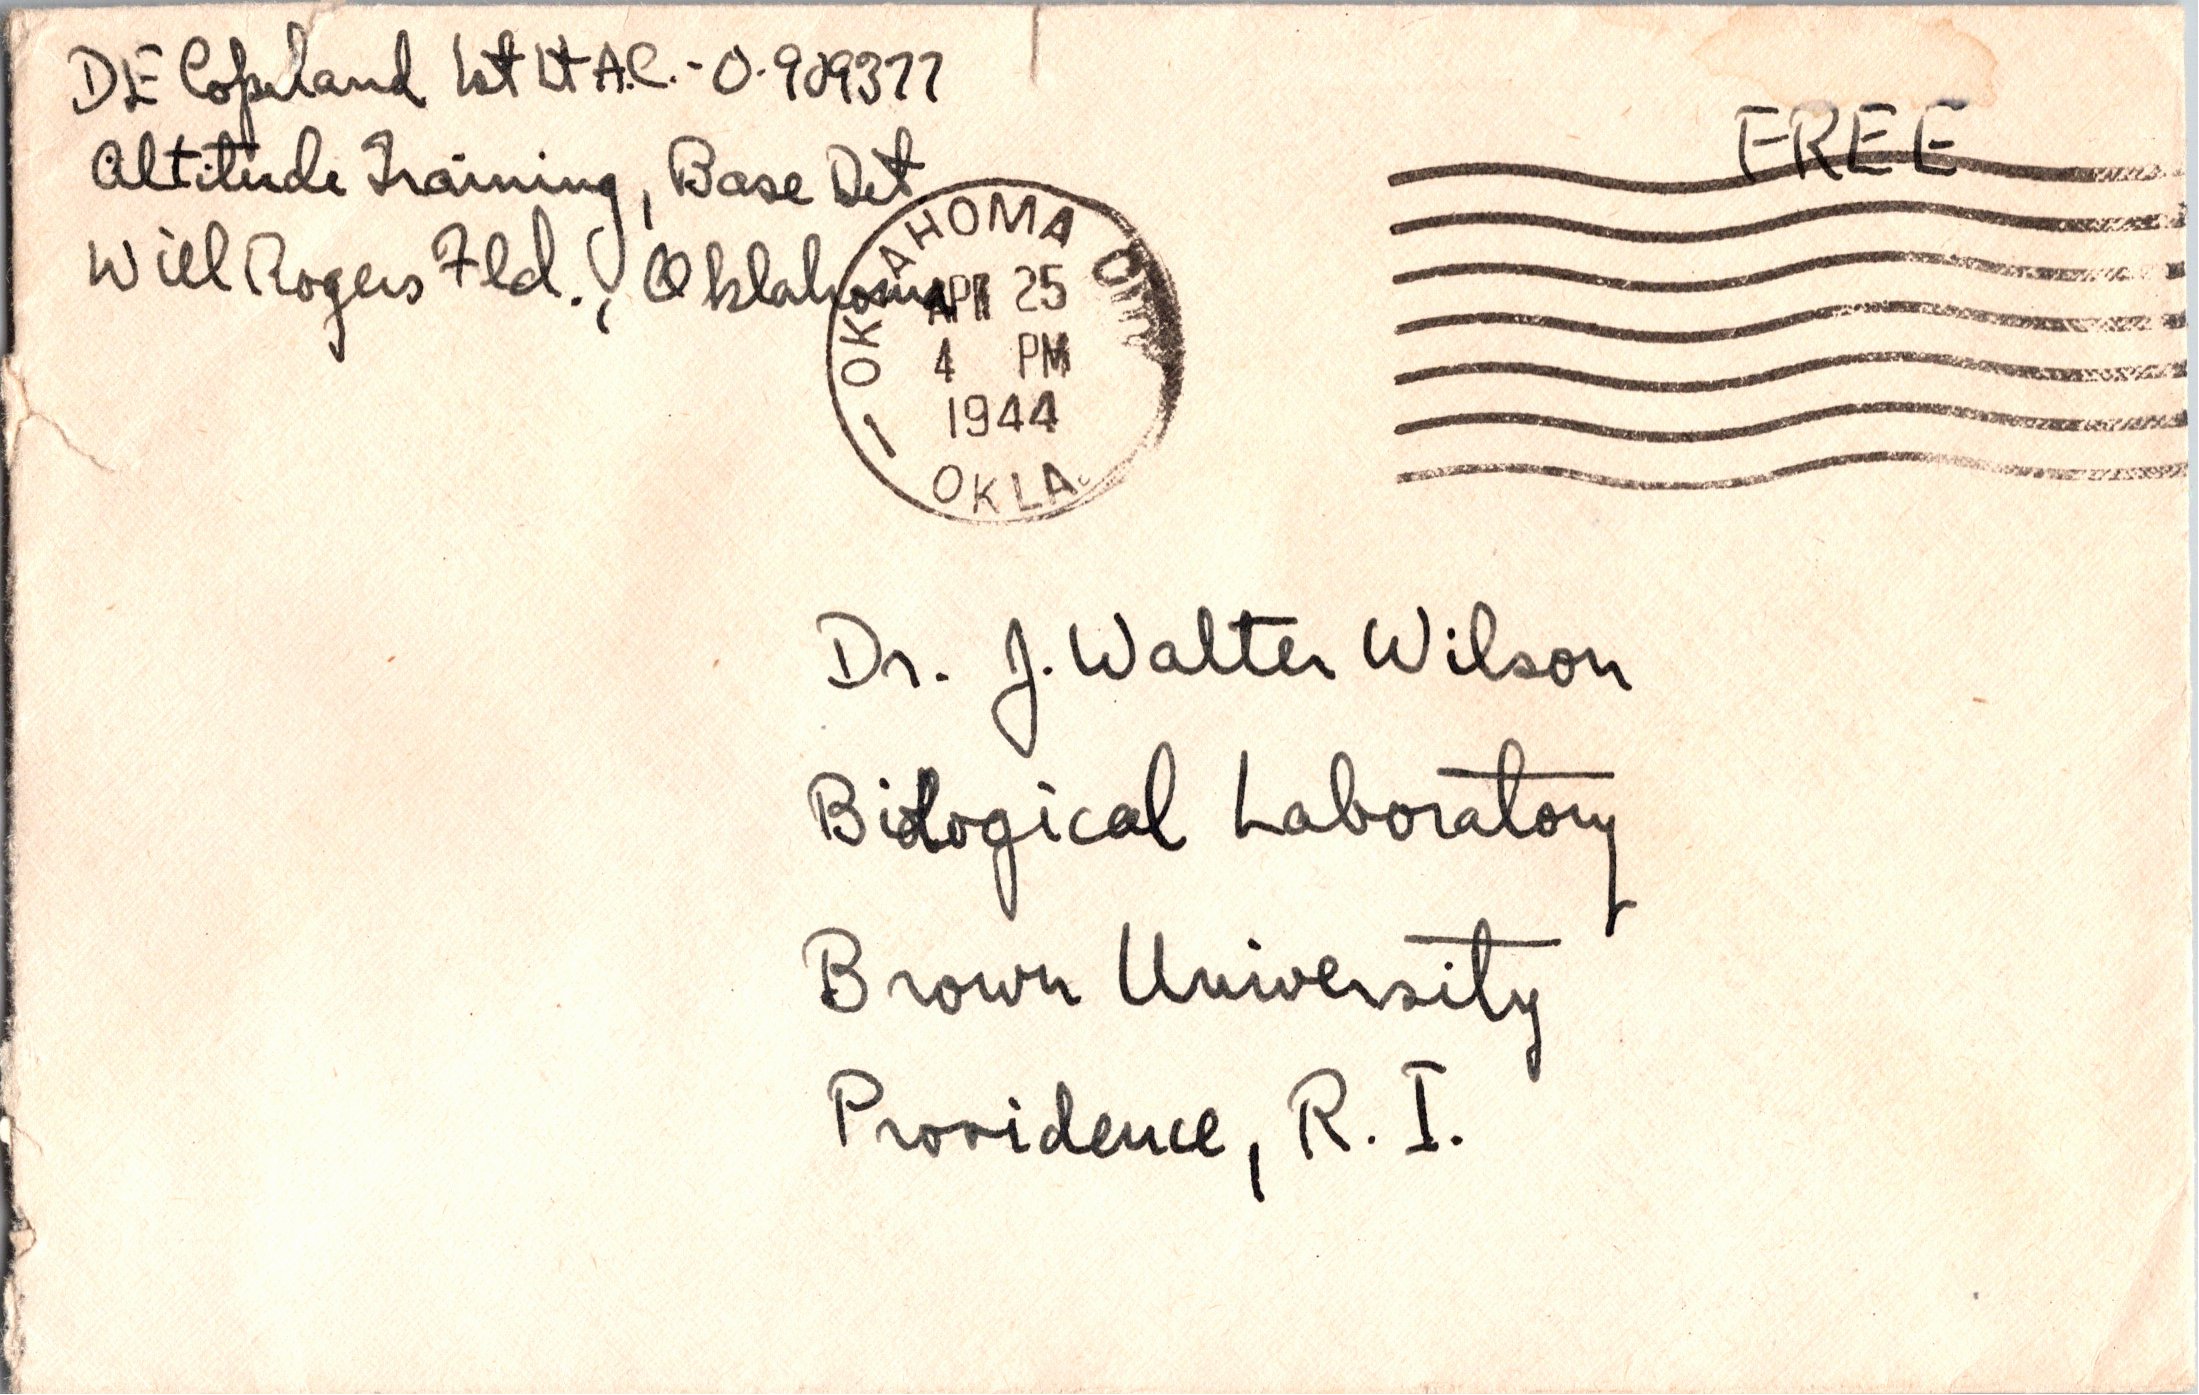 DE Copeland 1st Lt A.C. - O-909377
Altitude Training, Base Det
Will Rogers Fld., Oklahoma
FREE
OKLAHOMA CITY
APR 25
4 PM
1944
OKLA.
Dr. J. Walter Wilson
Biological Laboratory
Brown University
Providence, R. I.